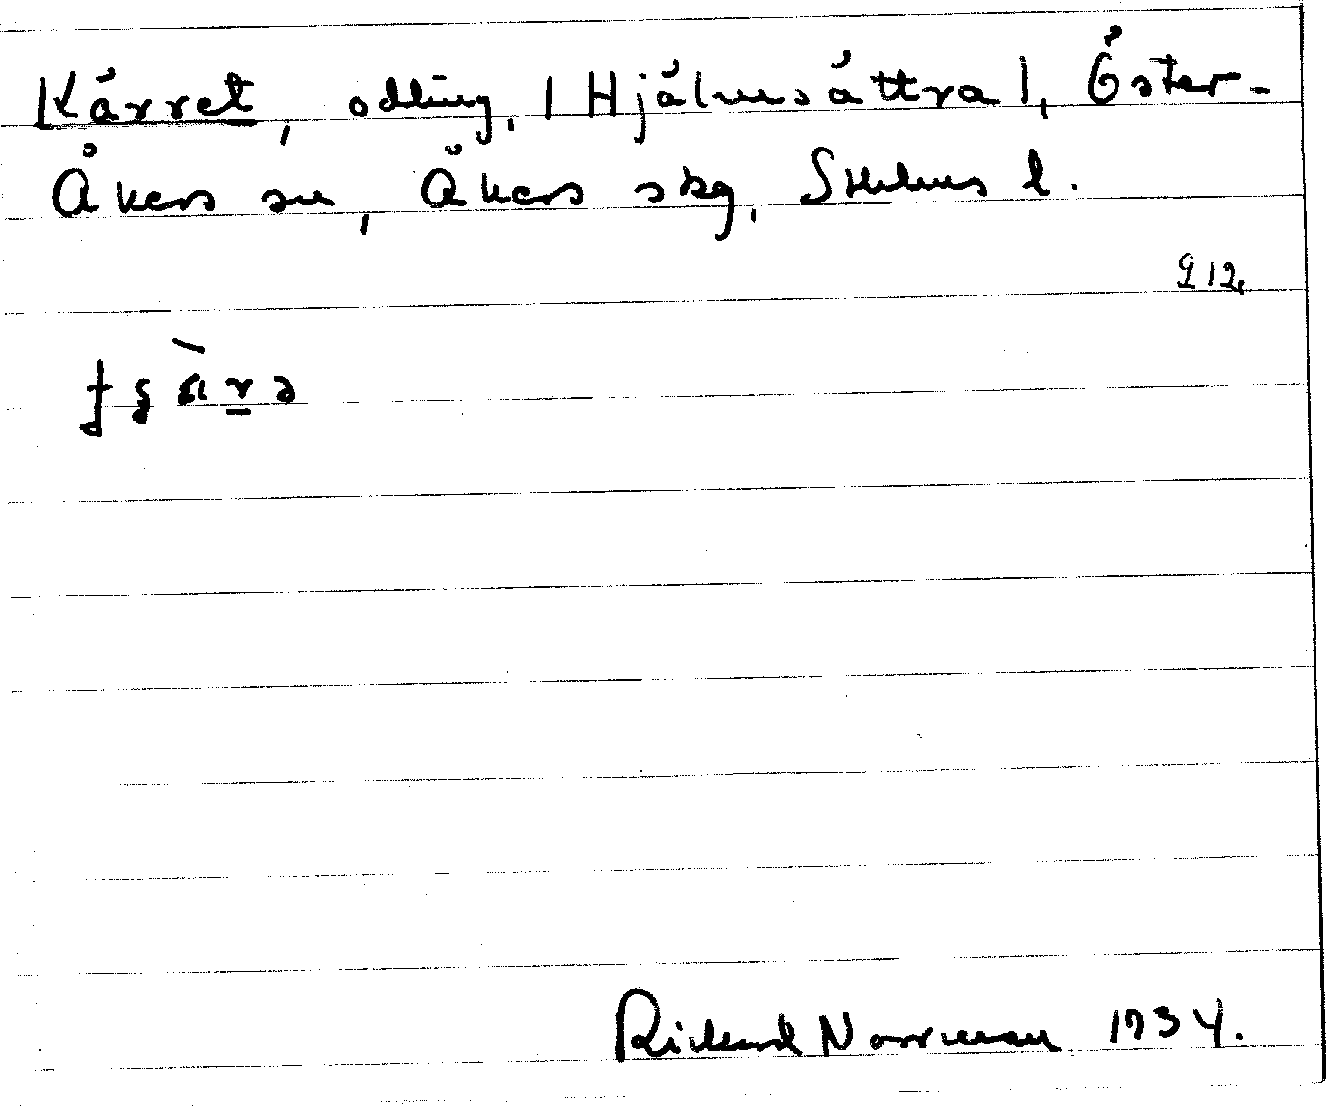 Kärret, odling, |Hjälmsättra|, Öster-
Åkers sn, Åkers skg, Sthlms l.
212.
Rickard Norrman 1934.